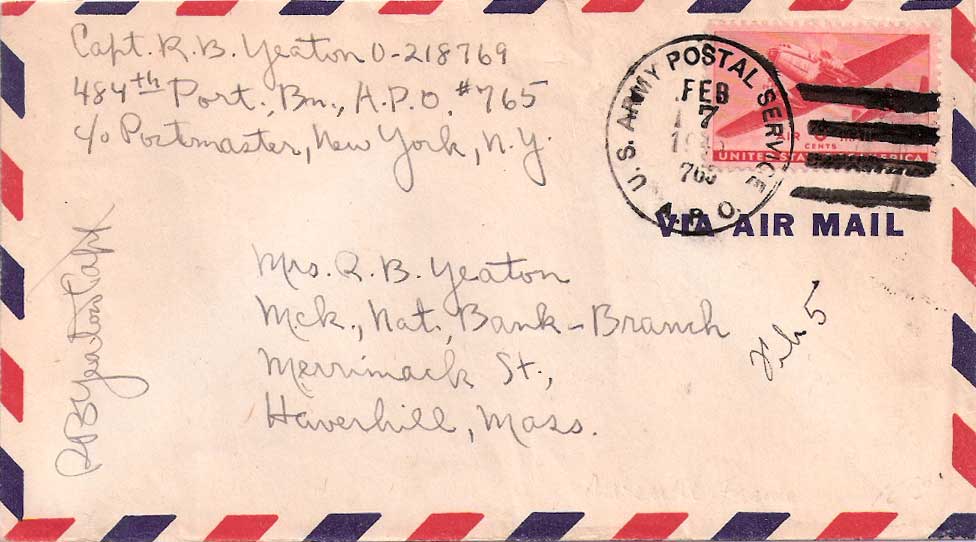 Capt. R. B. Yeaton O-218769
484th Port. Bn., A.P.O. #765
c/o Postmaster, New York, N.Y.
U.S. ARMY POSTAL SERVICE
FEB
7
765
A.P.O.
CENTS
UNITED STATES AMERICA
VIA AIR MAIL
Mrs. R. B. Yeaton
Mck. Nat. Bank - Branch
Merrimack St.,
Haverhill, Mass.
RB Yeaton Capt
Feb 5